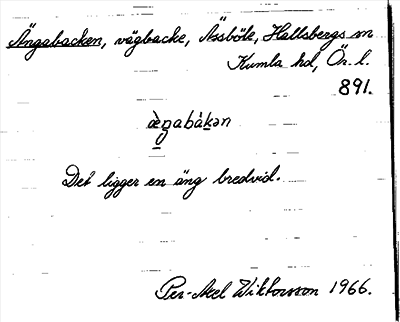 Ängabacken, vägbacke, Ässböle, Hallsbergs sn
Kumla hd, Ör. l.
891.
æ̀ŋabàkən
Det ligger en äng bredvid.
Per-Axel Wiktorsson 1966.